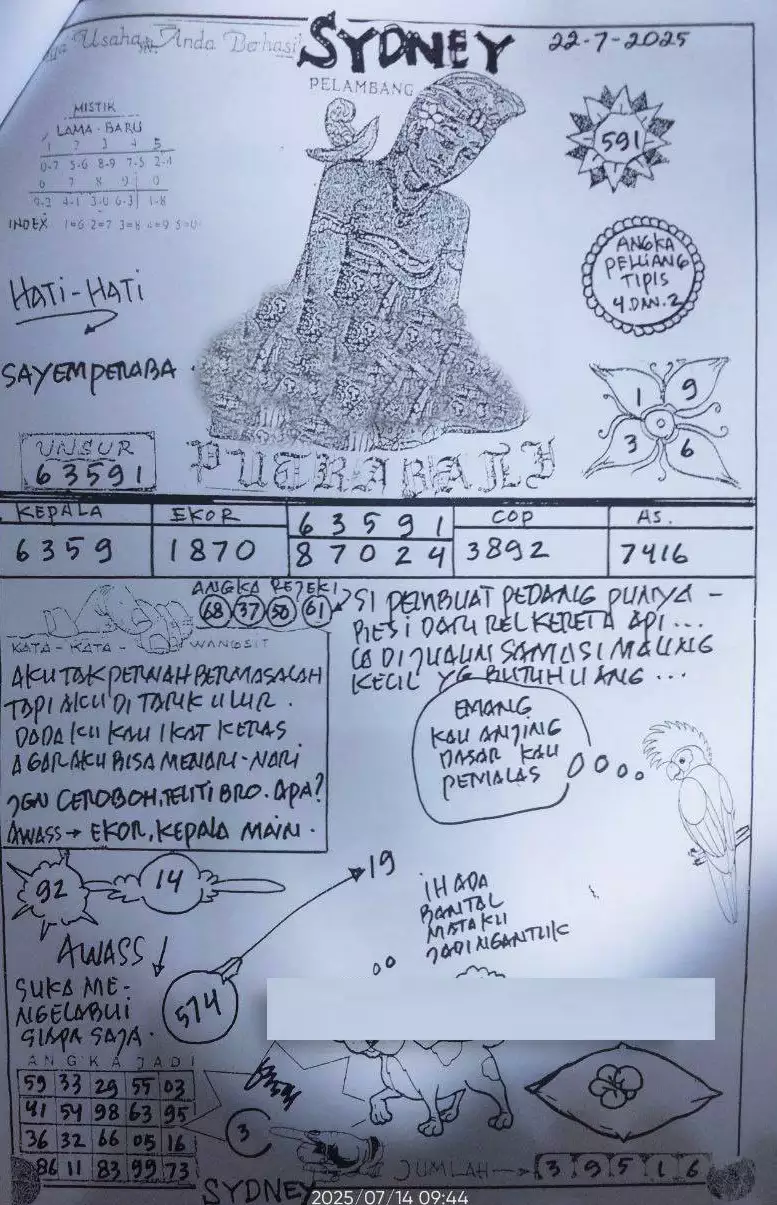 Usaha Anda Berhasil
SYDNEY
22-7-2025
PELAMBANG
MISTIK
LAMA - BARU
1 2 3 4 5
0-7 5-6 8-9 7-5 2-4
6 7 8 9 0
9-2 4-1 3-0 6-3 1-8
INDEX 1=6 2=7 3=8 4=9 5=0
591
ANGKA
PELUANG
TIPIS
4.DAN.2
HATI-HATI
SAYEMPERABA
1 9
3 6
UNSUR
63591
PUTRA BALI
KEPALA
6359
EKOR
1870
63591
87024
COP
3892
AS.
7416
ANGKA REJEKI
68 37 50 61
SI PEMBUAT PEDANG PUNYA -
BESI DARI REL KERETA API...
SAMA SI MALING
KECIL YG BUTUH UANG ...
KATA - KATA - WANGSIT
AKU TAK PERNAH BERMASALAH
TAPI AKU DI TARIK ULUR.
DADA KU KAU IKAT KERAS
AGAR AKU BISA MENARI-NARI
JGN CEROBOH, TELITI BRO. APA?
AWASS → EKOR, KEPALA MAIN.
EMANG
KAU ANJING
DASAR KAU
PEMALAS
92
14
19
IH ADA
BANTAL
MATAKU
JADI NGANTUK
AWASS
SUKA ME-
NGELABUI
SIAPA SAJA.
574
ANGKA JADI
59 33 29 55 03
41 54 98 63 95
36 32 66 05 16
86 11 83 99 73
3
JUMLAH → 3 9 5 1 6
SYDNEY
2025/07/14 09:44